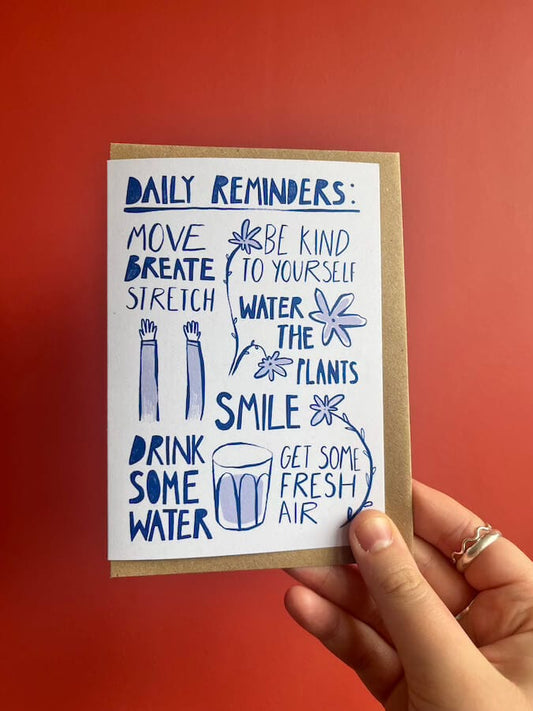 DAILY REMINDERS:
MOVE
BREATE
STRETCH
BE KIND
TO YOURSELF
WATER
THE
PLANTS
SMILE
DRINK
SOME
WATER
GET SOME
FRESH
AIR